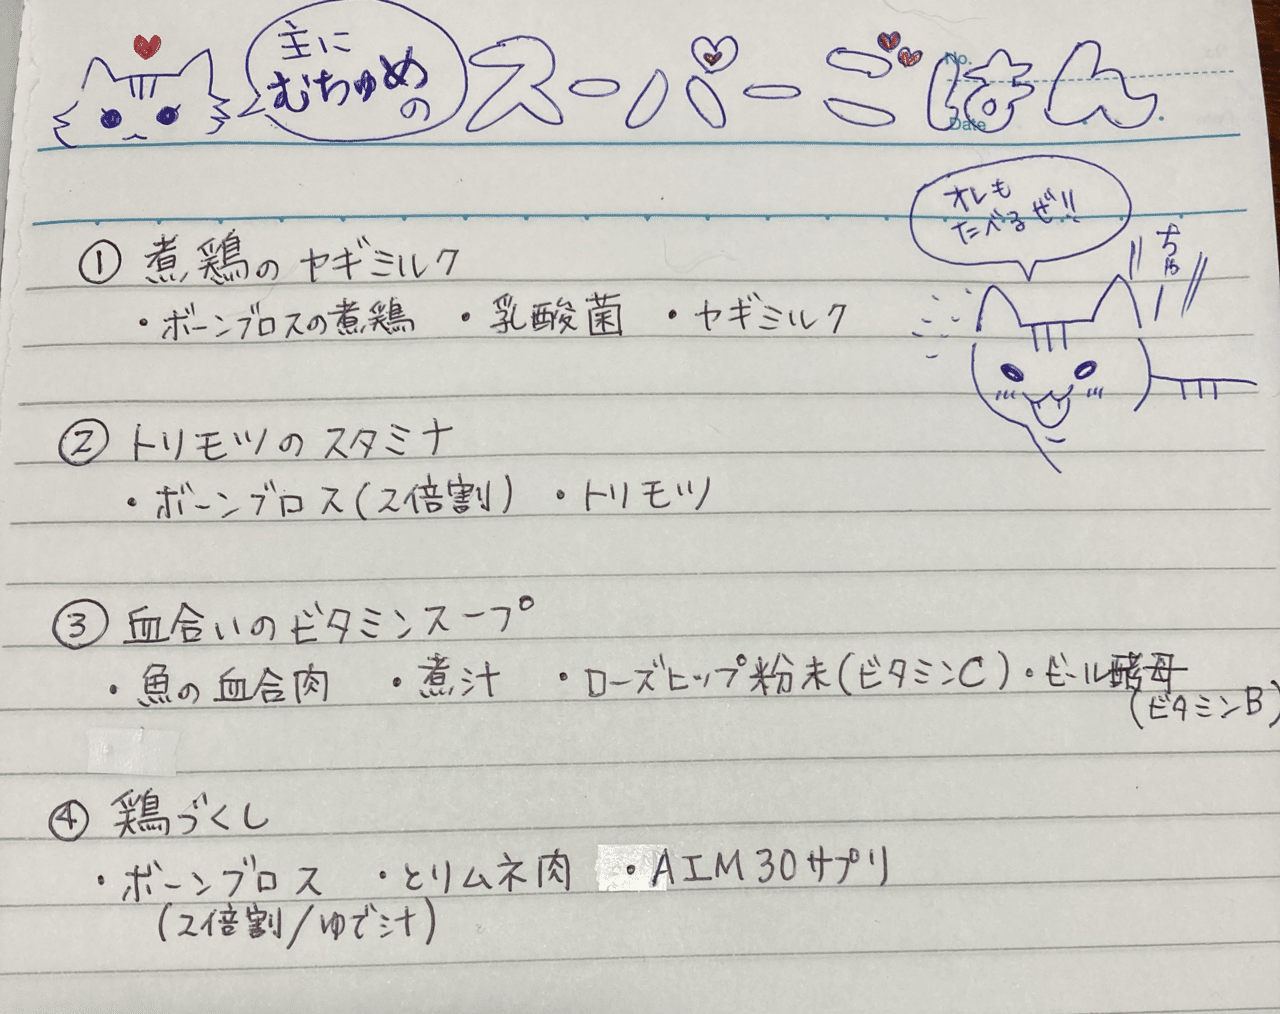 主に
むちゅめ
の
スーパーごはん
No.
Date
オレも
たべるぜ!!
① 煮鶏のヤギミルク
・ボーンブロスの煮鶏 ・乳酸菌 ・ヤギミルク
② トリモツのスタミナ
・ボーンブロス(2倍割) ・トリモツ
③ 血合いのビタミンスープ
・魚の血合肉 ・煮汁 ・ローズヒップ粉末(ビタミンC)・ビール酵母
(ビタミンB)
④ 鶏づくし
・ボーンブロス ・とりムネ肉 ・AIM30サプリ
(2倍割/ゆで汁)